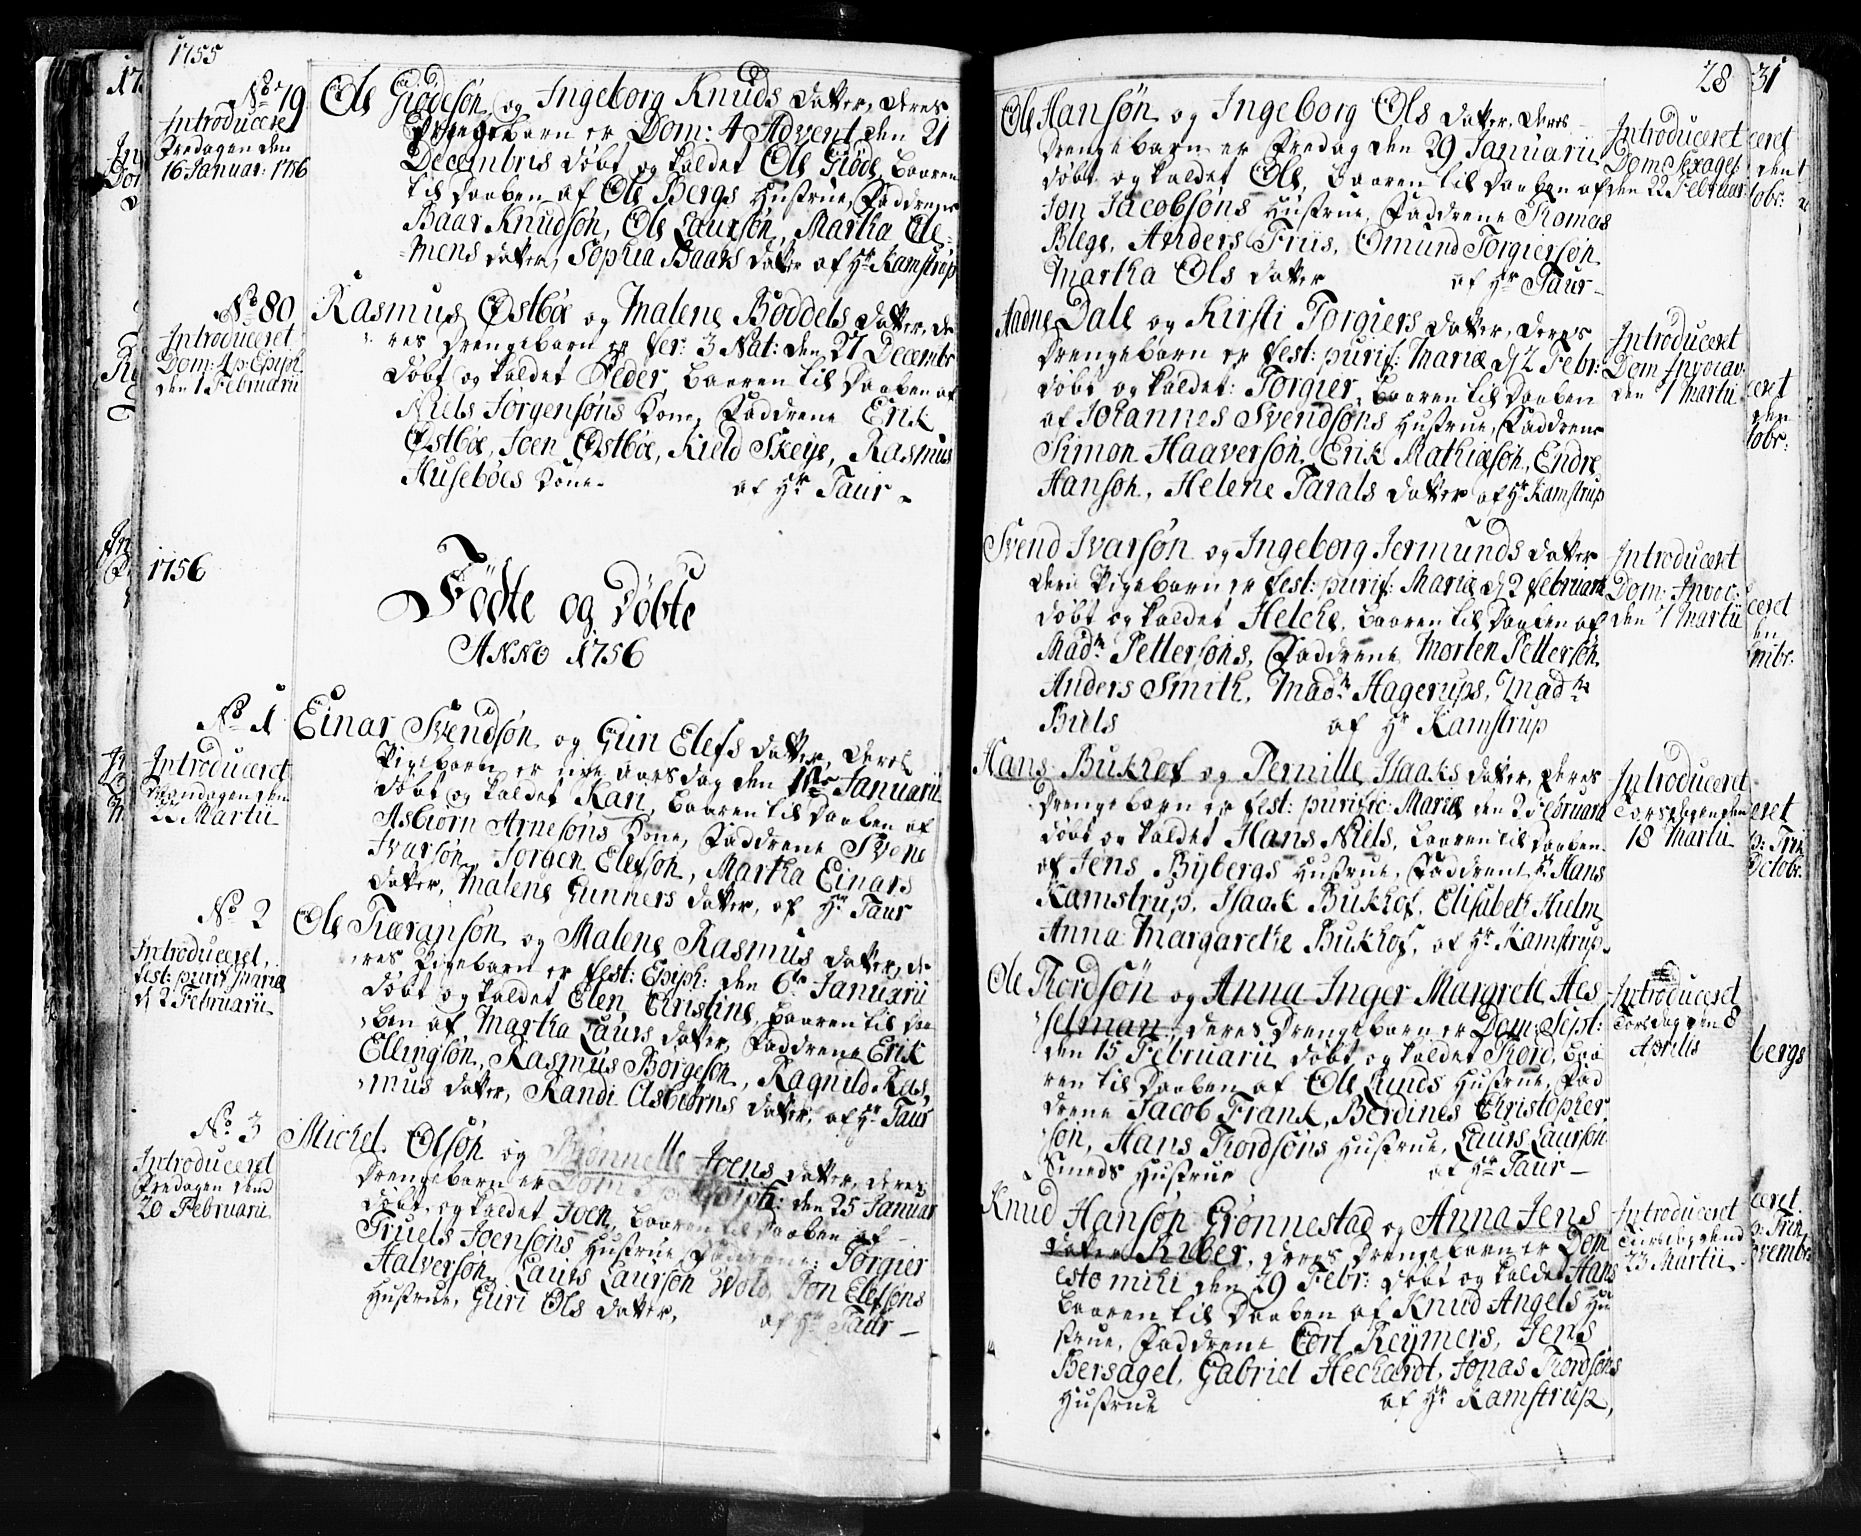 1755
No 79
Introducere
Fredagen den
16 Januar: 1756
Ole Giødesøn og Ingeborg Knuds datter, deres
Drengebarn er Dom: 4 Advent den 21
Decembris døbt og kaldet Ole Giøde, baaren
til daaben af Ole Bergs Hustrue, Faddrene
Baar Knudsøn, Ole Laursøn, Martha Cle-
-mens datter, Sophia Baars datter af Hr Kamstrup
No 80
Introduceret
Dom: 4 p: Epiph:
den 1 Februarii
Rasmus Østbø og Malene Bøddels datter, de-
res drengebarn er fer: 3 Nat: den 27 Decembr
døbt og kaldet Peder, baaren til daaben af
Niels Jørgensøns Kone, Faddrene Erik
Østbø, Joen Østbø, Kield Skeije, Rasmus
Husebøes Kone. af Hr Taur-
1756
Fødte og Døbte
Anno 1756
No 1
Introduceret
Mandagen den
22 Martii
Einar Svendsøn og Guri Elefs datter, deres
Pigebarn er nye aarsdag den 1ste Januarii
døbt og kaldet Kari, baaren til daaben af
Asbiørn Arnesøns Kone, Faddrene Svend
Ivarsøn, Jørgen Elefsøn, Martha Einars
datter, Malene Gunners datter, af Hr Taur
No 2
Introduceret
fest: purif: Mariæ
d 2 Februarii
Ole Tiæransøn og Malene Rasmus datter, de-
res Pigebarn er fest: Epiph: den 6te Januarii
døbt og kaldet Elen Christine, baaren til daa-
ben af Martha Laurs datter, Faddrene Erik
Ellingsøn, Rasmus Børgesøn, Ragnild Ras,
mus datter, Randi Asbiørns datter, af Hr Taur
No 3
Introduceret
Fredagen dend
20 Februarii
Michel Olsøn og Brønnelle Joens datter, deres
Drengebarn er Dom: Epiph: den 25 Januar
døbt og kaldet Joen, baaren til daaben af
Truels Joensøns Hustrue, Faddrene: Torgier
Halversøn, Laurs Laursøn Wold, Jon Elefsøns
Hustrue, Guri Ols datter, af Hr Taur-
28
31
Ole Hansøn og Ingeborg Ols datter, deres
Drengebarn er Fredag den 29 Januarii
døbt og kaldet Ole, baaren til daaben af
Jon Jacobsøns Hustrue, Faddrene Thomas
Blege, Anders Friis, Omund Torgiersøn
Martha Ols datter af Hr Taur-
Introduceret
Dom: Sexages:
den 22 Februar
Aadne Dale og Kirsti Torgiers datter, deres
Drengebarn er fest: purif: Mariæ d 2 Febr:
døbt og kaldet: Torgier, baaren til daaben
af Johannes Svendsøns Hustrue, Faddrene
Simon Haaversøn, Erik Mathiæsøn, Endre
Hansøn, Helene Tarals datter af Hr Kamstrup
Introduceret
Dom Invocav:
den 7 Martii
Svend Ivarsøn og Ingeborg Jermunds datter
deris Pigebarn er fest: purif: Mariæ d 2 Februarii
døbt og kaldet Helche, baaren til daaben af
Madme Pettersøns, Faddrene Morten Pettersøn
Anders Smith, Madme Hagerups, Madme
Biels af Hr Kamstrup
Introduceret
Dom: Invoc:
den 7 Martii
Hans Bukhof og Pernille Isaaks datter, deres
Drengebarn er fest: purific: Mariæ den 2 Februarii
døbt og kaldet Hans Niels, baaren til daaben
af Jens Bybergs Hustrue, Faddrene Hr Hans
Kamstrup, Isaak Bukhof, Elisabeth Hulm
Anna Margarethe Bukhof, af Hr Kamstrup.
Introduceret
Torsdagen den
18 Martii
Ole Thordsøn og Anna Inger Margrete Hes
selman, deres Drengebarn er Dom: Sept:
den 15 Februarii døbt og kaldet Thord, baa
ren til daaben af Ole Lunds Hustrue, Fad
drene Jacob Frank, Berdines Christopher
søn, Hans Thordsøns Hustrue, Laurs Laursøn
Smeds Hustrue af Hr Taur-
Introduceret
Torsdag den 8
Aprilis
Knud Hansøn Grønnestad og Anna Jens
datter Riber, deres Drengebarn er Dom
esto mihi den 29 Febr: døbt og kaldet Hans
baaren til daaben af Knud Angels Hu
strue, Faddrene Cort Reymers, Jens
Bersagel, Gabriel Hechardt, Jonas Thordsøns
Hustrue af Hr Kamstrup,
Introduceret
Tirsdag dend
23 Martii
bergs